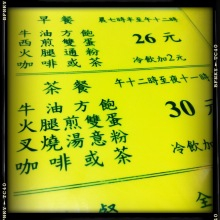 早餐 晨七時半至午十二時
牛油方飽
西煎雙蛋 26元
火腿通粉
咖啡或茶 冷飲加2元
茶餐 午十二時至夜十一時
牛油方飽
火腿煎雙蛋 30元
叉燒湯意粉
咖啡或茶 冷飲加
餐 全